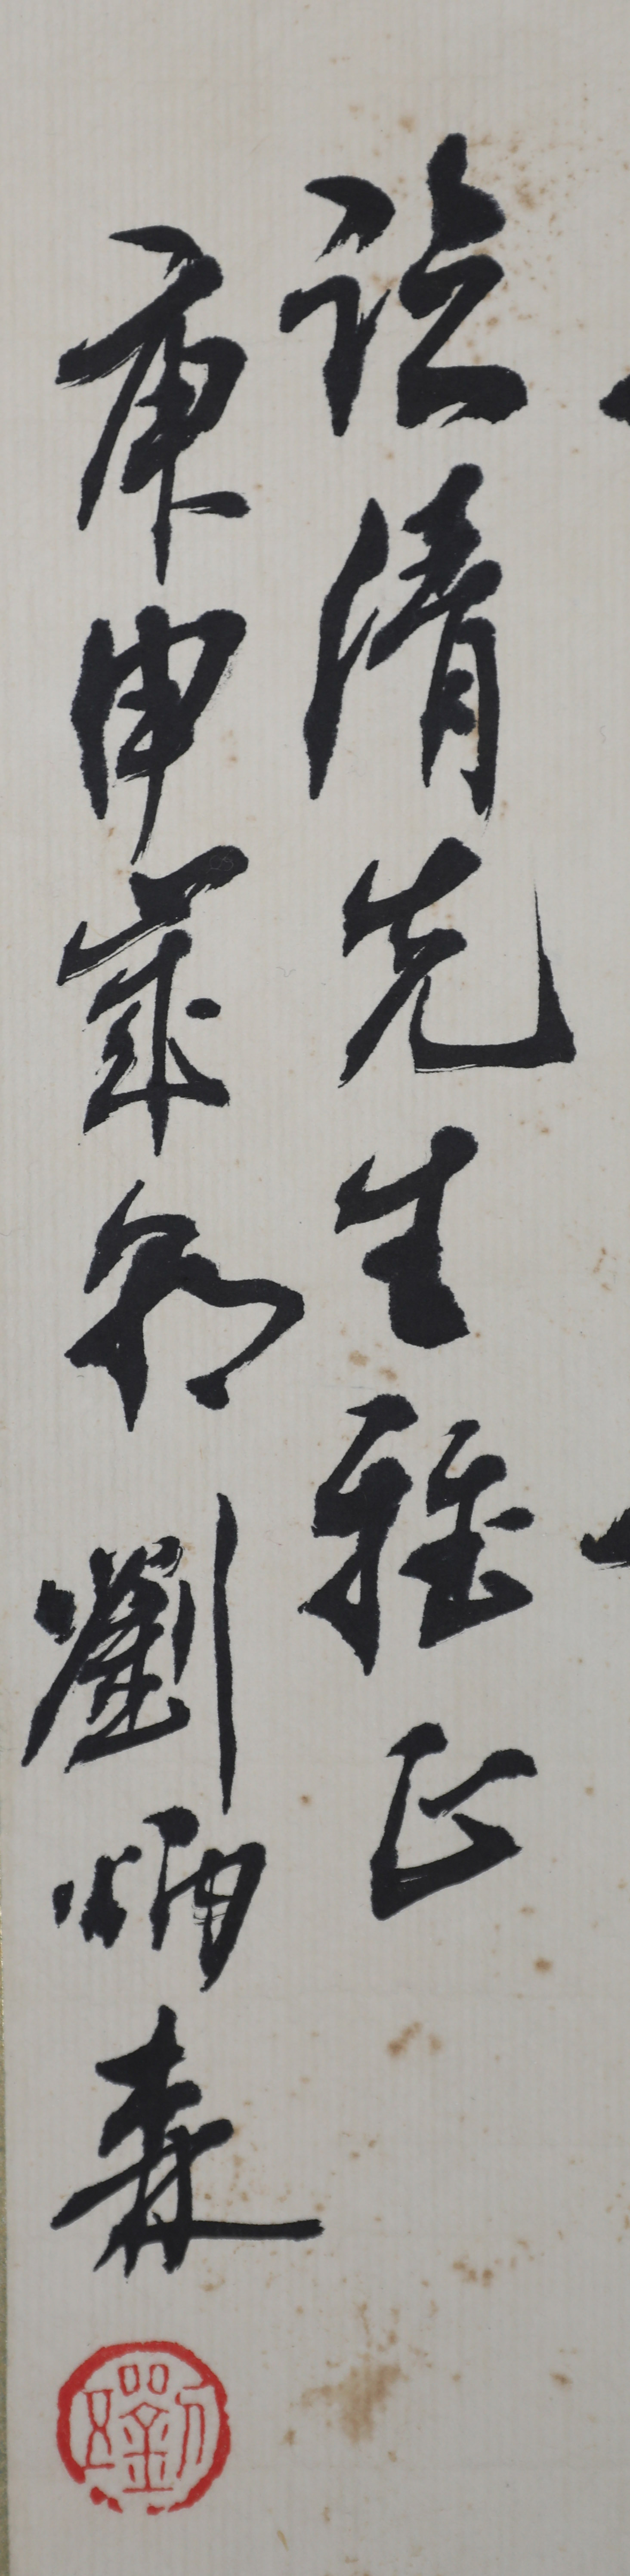 清先生雅正
庚申歲初 劉炳森
劉